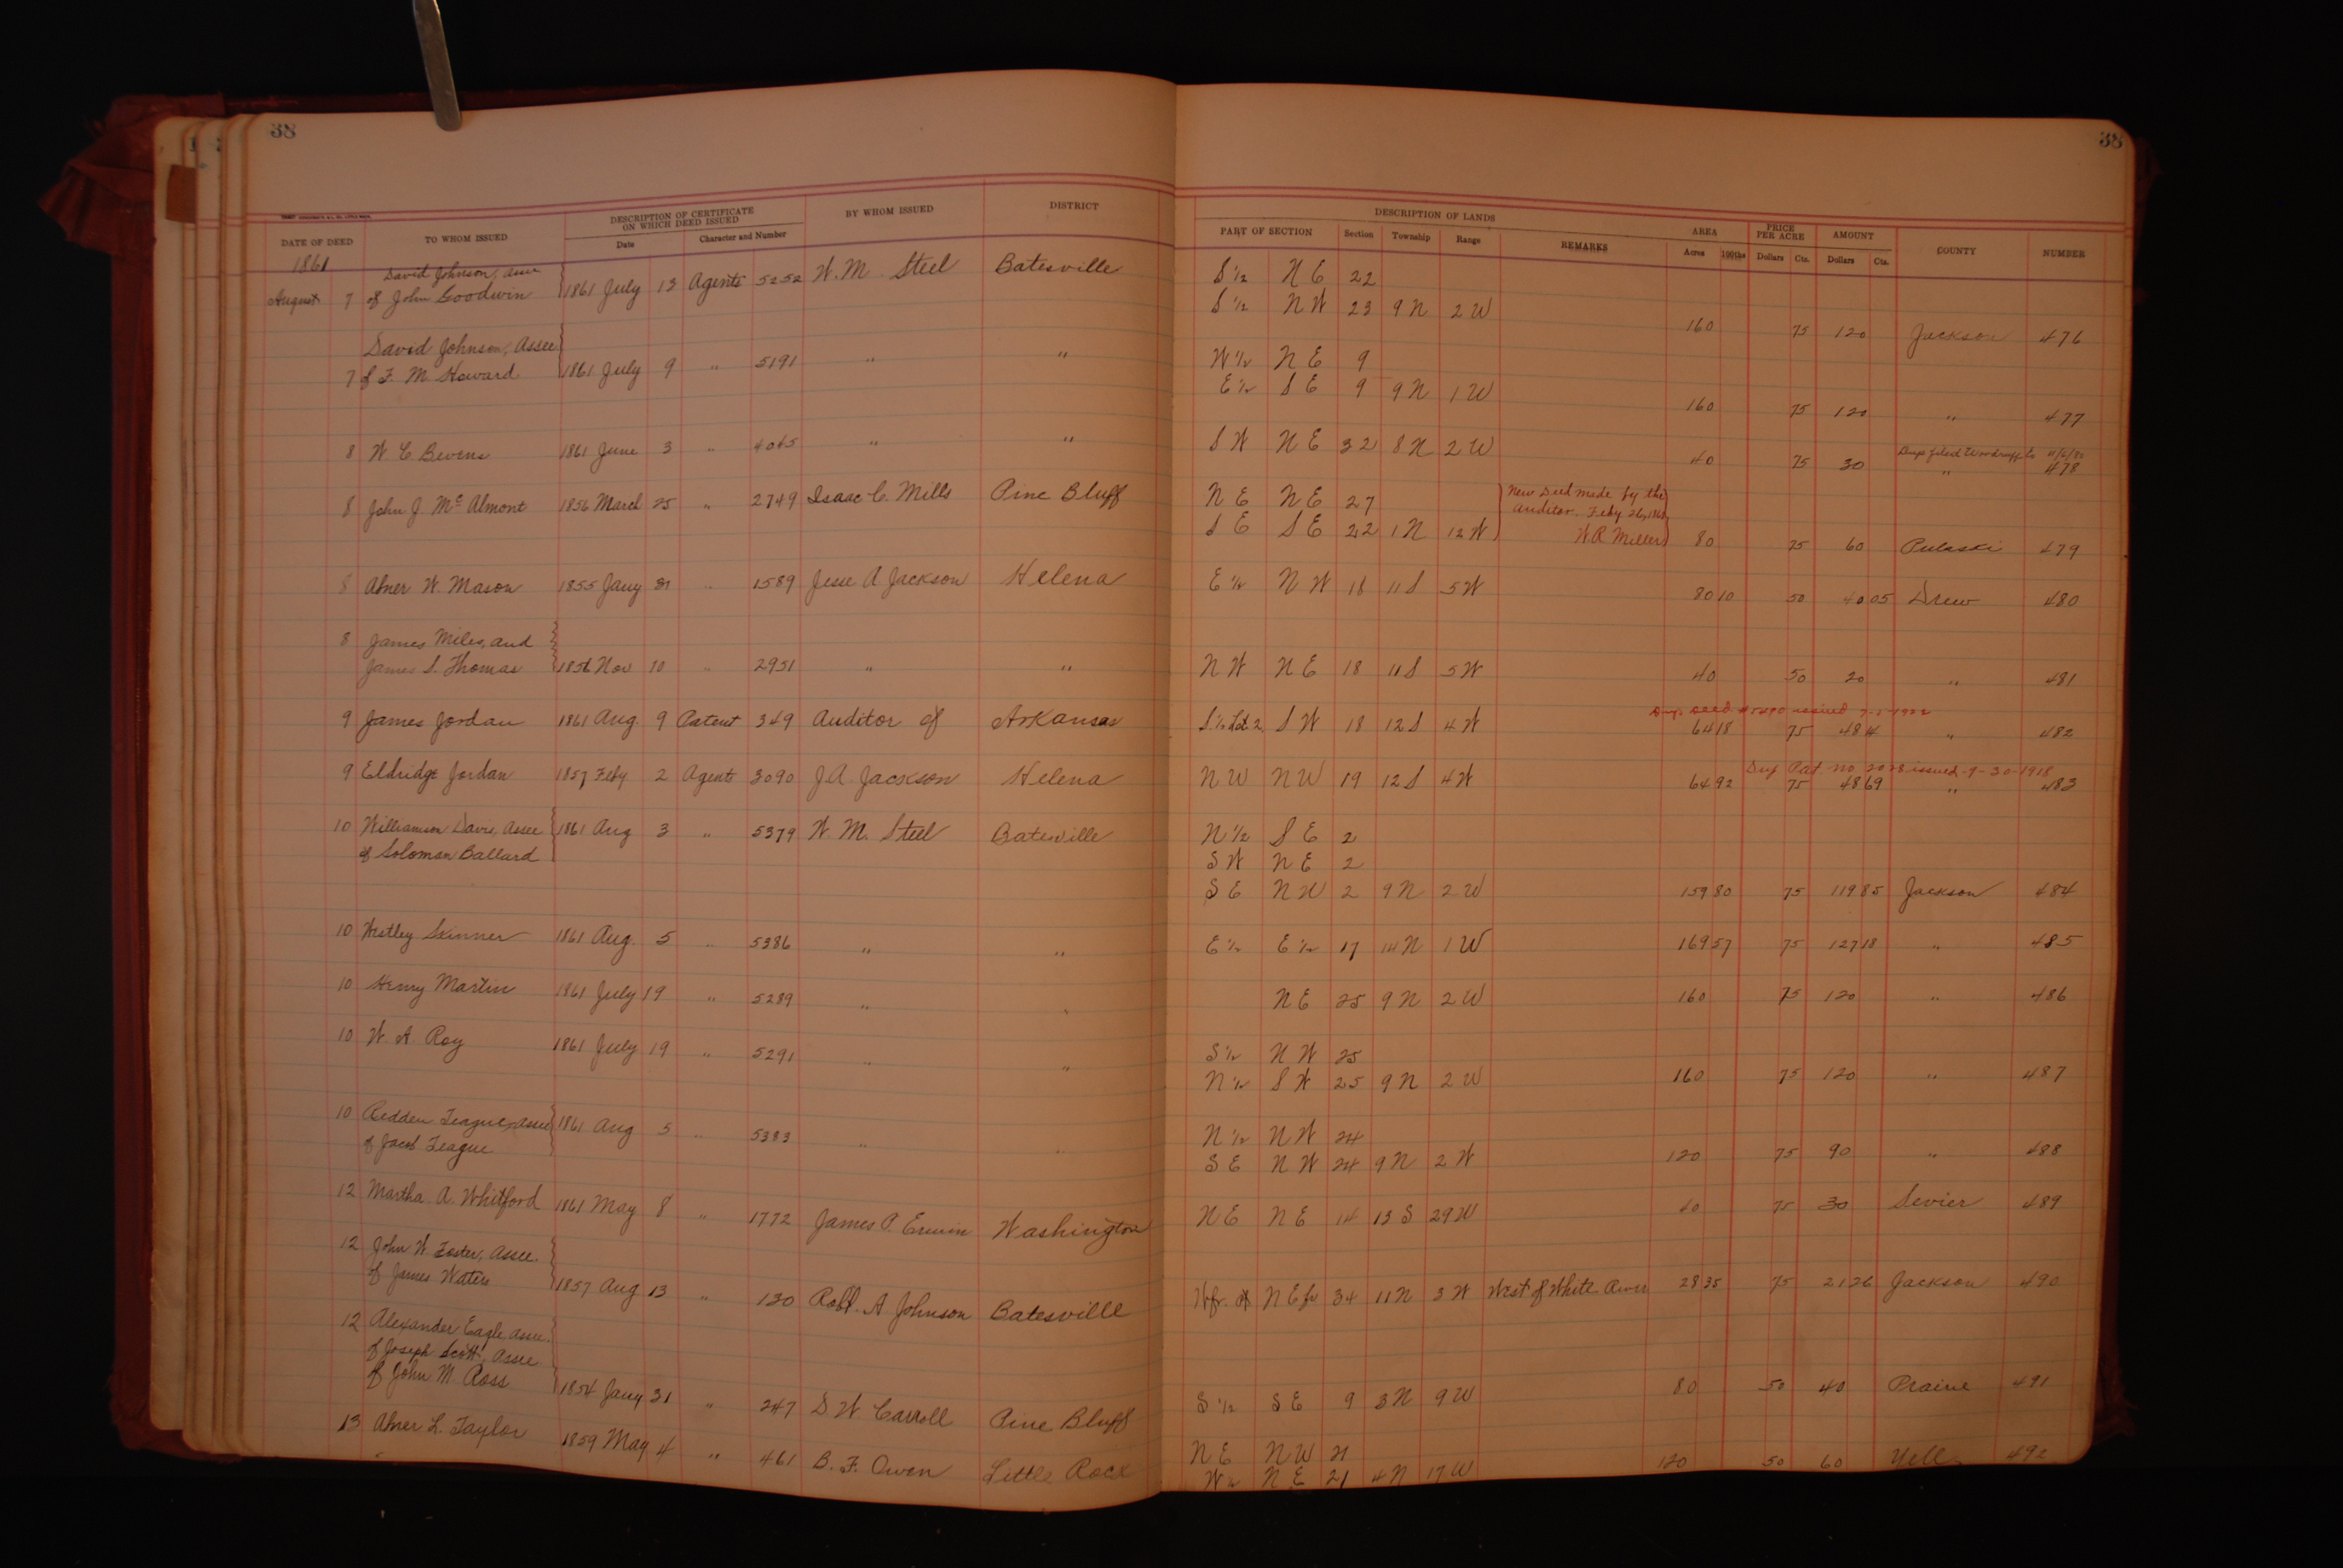 38
38
DATE OF DEED TO WHOM ISSUED DESCRIPTION OF CERTIFICATE ON WHICH DEED ISSUED Date Character and Number BY WHOM ISSUED DISTRICT PART OF SECTION DESCRIPTION OF LANDS Section Township Range REMARKS AREA Acres 100ths PRICE PER ACRE Dollars Cts. AMOUNT Dollars Cts. COUNTY NUMBER
1861
David Johnson, Assee
August 7 of John Goodwin 1861 July 13 Agents 5252 W. M. Steel Batesville S 1/2 N E 22
S 1/2 N W 23 9 N 2 W 160 75 120 Jackson 476
David Johnson, Assee
7 of F. M. Howard 1861 July 9 " 5191 " " W 1/2 N E 9
E 1/2 S E 9 9 N 1 W 160 75 120 " 477
8 W C Bevens 1861 June 3 " " " S W N E 32 8 N 2 W 40 75 30 " 478
8 John J Mc Almont 1856 March 25 " 2749 Isaac C. Mills Pine Bluff N E N E 27 New Deed made by the
S E S E 22 1 N 12 W Auditor. Feby 26, W. R. Miller 80 75 60 Pulaski 479
8 Abner W. Mason 1855 Jany 31 " 1589 Jesse A Jackson Helena E 1/2 N W 18 11 S 5 W 80 10 50 40 05 Drew 480
8 James Miles, and
James S. Thomas 1856 Nov 10 " 2951 " " N W N E 18 11 S 5 W 40 50 20 " 481
9 James Jordan 1861 Aug. 9 Patent 349 Auditor of Arkansas S. 1/2 Lot 2 S W 18 12 S 4 W 64 18 75 48 14 " 482
Dup Pat. no. 2028 issued - 9-30-1918
9 Eldridge Jordan 1857 Feby 2 Agents 3090 J. A. Jackson Helena N W N W 19 12 S 4 W 64 92 75 48 69 " 483
10 Williamson Davis, Assee 1861 Aug 3 " 5379 W. M. Steel Batesville N 1/2 S E 2
of Solomon Ballard S W N E 2
S E N W 2 9 N 2 W 159 80 75 119 85 Jackson 484
10 Westley Skinner 1861 Aug. 5 " 5386 " " E 1/2 E 1/2 17 14 N 1 W 169 57 75 127 18 " 485
10 Henry Martin 1861 July 19 " 5289 " " N E 25 9 N 2 W 160 75 120 " 486
10 W. A. Roy 1861 July 19 " 5291 " " S 1/2 N W 25
N 1/2 S W 25 9 N 2 W 160 75 120 " 487
10 Redden Teague, Assee 1861 Aug 5 " 5383 " " N 1/2 N W 24
of Jacob Teague S E N W 24 9 N 2 W 120 75 90 " 488
12 Martha A. Whitford 1861 May 8 " 1772 James P. Erwin Washington N E N E 14 13 S 29 W 40 75 30 Sevier 489
12 John W. Foster, Assee.
of James Waters 1857 Aug 13 " 130 Robt. A Johnson Batesville W fr. of N E fr 34 11 N 3 W West of White River 28 35 75 21 26 Jackson 490
12 Alexander Eagle, Assee.
of Joseph Scott, Assee
of John M. Ross 1854 Jany 31 " 247 S. W. Carroll Pine Bluff S 1/2 S E 9 3 N 9 W 80 50 40 Prairie 491
13 Abner L. Taylor 1859 May 4 " 461 B. F. Owen Little Rock N E N W 21
W 1/2 N E 21 4 N 17 W 120 50 60 Yell 492